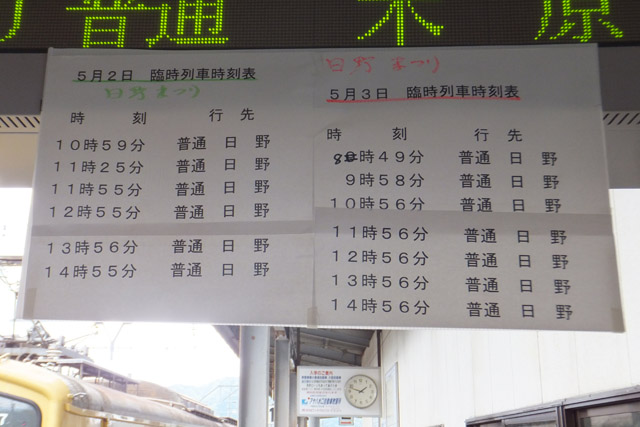 普通 米原
5月2日 臨時列車時刻表
日野まつり
時 刻 行 先
10時59分 普通 日 野
11時25分 普通 日 野
11時55分 普通 日 野
12時55分 普通 日 野
13時56分 普通 日 野
14時55分 普通 日 野
日野まつり
5月3日 臨時列車時刻表
時 刻 行 先
8時49分 普通 日 野
9時58分 普通 日 野
10時56分 普通 日 野
11時56分 普通 日 野
12時56分 普通 日 野
13時56分 普通 日 野
14時56分 普通 日 野